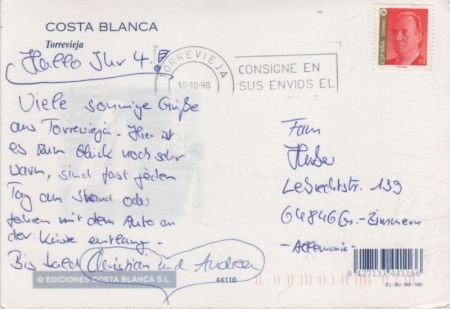 COSTA BLANCA
Torrevieja
Hallo Ihr 4!
Viele sonnige Grüße
aus Torrevieja. Hier ist
es zum Glück noch sehr
warm, sind fast jeden
Tag am Strand oder
fahren mit dem Auto an
der Küste entlang.
Bis bald Christian und Andrea
TORREVIEJA
19-10-98
CONSIGNE EN
SUS ENVIOS EL
ESPAÑA
Correos
Fam
Huber
Lebrechtstr. 139
64846 Gr.-Zimmern
-Allemania-
© EDICIONES COSTA BLANCA S.L.
44116
8 427133 441166